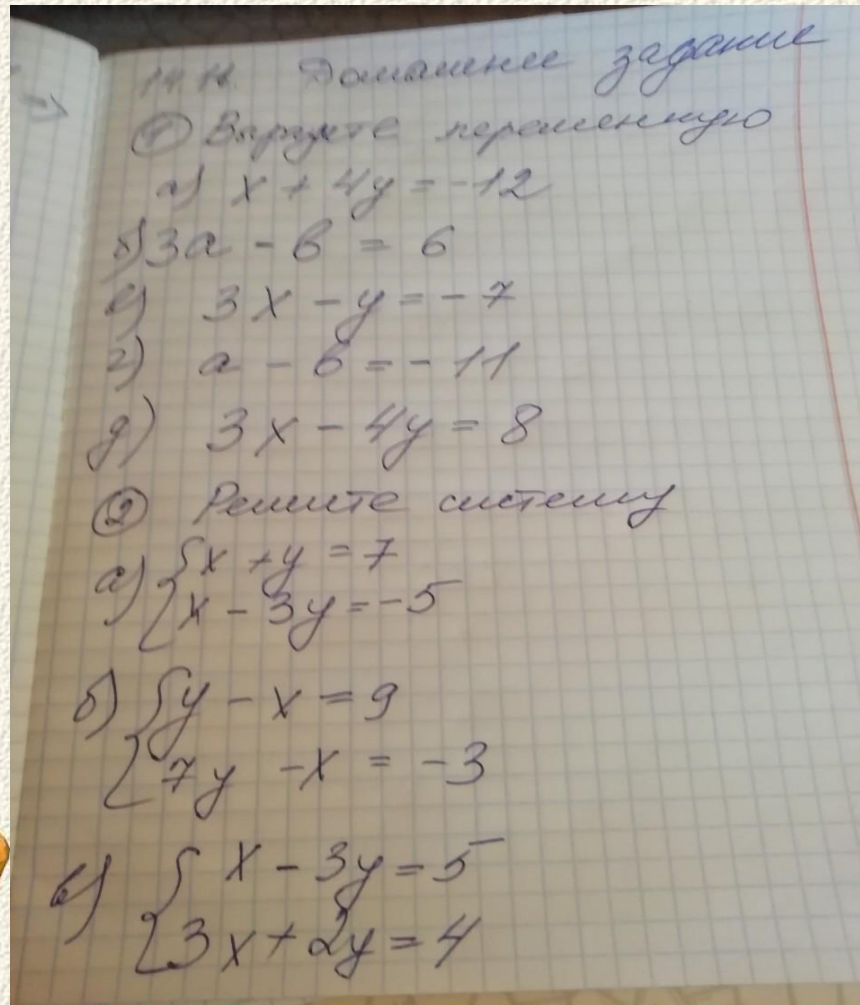 14.11. Домашнее задание
① Выразите переменную
а) x + 4y = -12
б) 3a - b = 6
в) 3x - y = -7
г) a - b = -11
д) 3x - 4y = 8
② Решите систему
а) { x + y = 7
x - 3y = -5
б) { y - x = 9
7y - x = -3
в) { x - 3y = 5
3x + 2y = 4